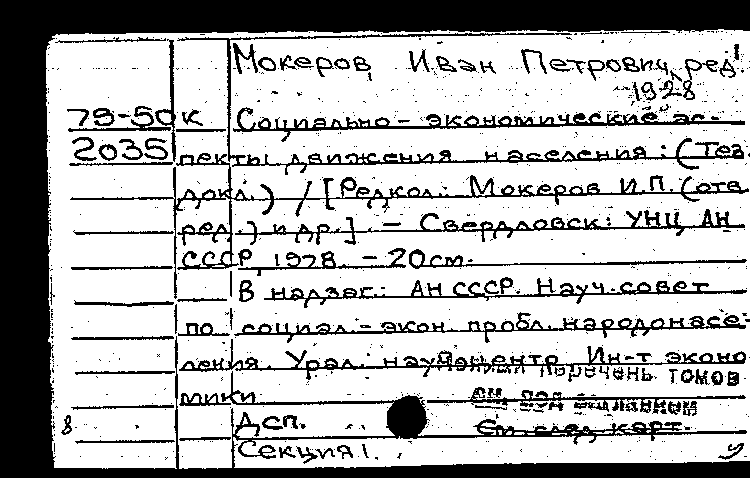 Мокеров, Иван Петрович, ред.
1928
79-50к Социально-экономические ас-
2035 пекты движения населения: (Тез.
докл.) / [Редкол.: Мокеров И.П. (отв.
ред.) и др.]. - Свердловск: УНЦ АН
СССР, 1978. - 20см.
В надзаг.: АН СССР. Науч. совет
по социал.-экон. пробл. народонасе-
ления. Урал. науч. центр. Ин-т эконо
перечень томов
мики
см. под заглавием
8 Дсп. См. след. карт.
Секция 1.